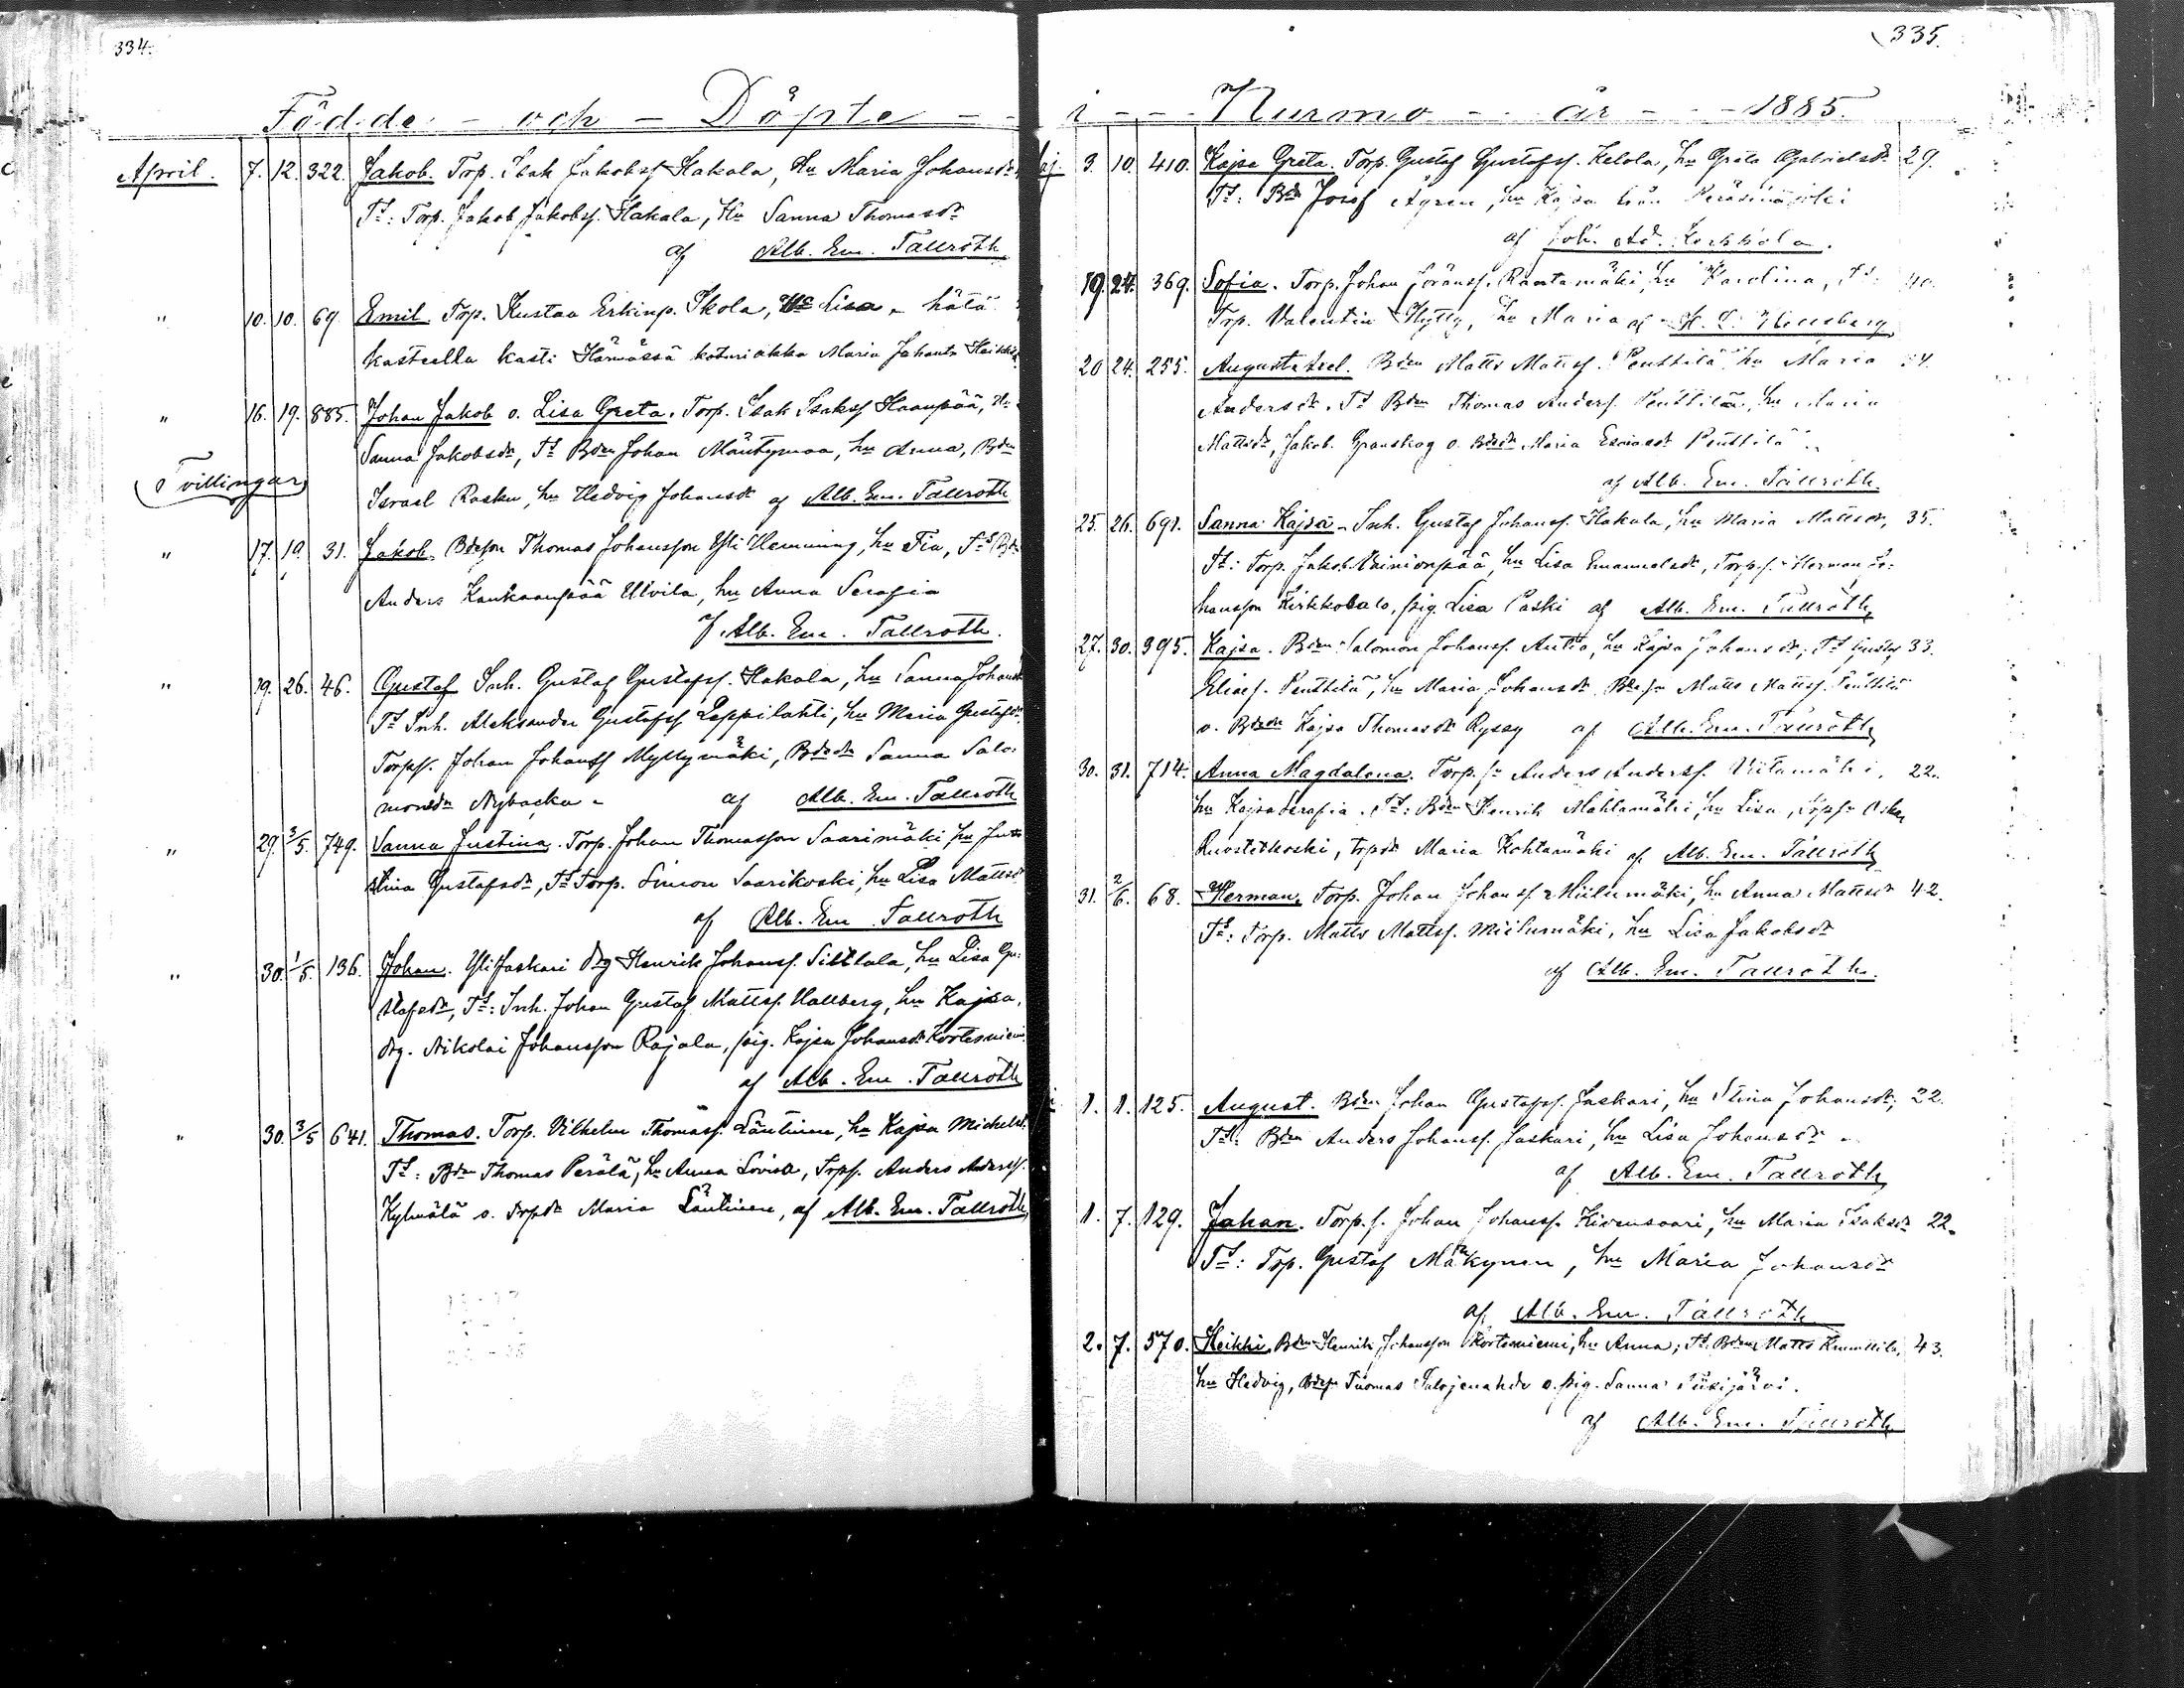 334.
Födde - och - Döpte - -
April. 7. 12. 322. Jakob. Torp. Isak Jakobsf Hakala, Hu Maria Johansdr
Ts: Torp. Jakob Jakobsf. Hakala, Hu Sanna Thomasdr
af Alb. Em. Tallroth
" 10. 10. 69. Emil. Torp. Kustaa Erkinp. Ikola, Lisa - hätä
kasteella kasti Hämässä Maria
" 16. 19. 885. Johan Jakob o. Lisa Greta. Torp. Isak Isaksf Haanpää, Hu
Sanna Jakobsdr, Ts Bdn Johan Mäntymaa, hu Anna, Bdn
(Tvillingar)
Israel Rasku, hu Hedvig Johansdr af Alb. Em. Tallroth
" 17. 19. 31. Jakob. Bdeson Thomas Johansson Yli Hemming, hu Fia, Ts Bdn
Anders Kankaanpää Ulvila, hu Anna Serafia
af. Alb. Em. Tallroth.
" 19. 26. 46. Gustaf Inh. Gustaf Gustafsf. Hakala, hu Sanna Johansdr
Ts Inh. Aleksander Gustafsf Leppilahti, hu Maria Gustafsdr
Torpsf. Johan Johansf Myllymäki, Bdedr Sanna Salo:
monsdr Nybacka - af Alb. Em. Tallroth
" 29. 3/5. 749. Sanna Justina. Torp. Johan Thomasson Saarimäki hu Ju
stina Gustafsdr, Ts Torp. Simon Saarikoski, hu Lisa Mattsdr
af Alb. Em Tallroth
" 30. 1/5. 136. Johan. Ylijaskari drg Henrik Johansf. Sillala, hu Lisa Gu:
stafsdr, Ts: Inh. Johan Gustaf Mattsf. Hallberg, hu Kajsa,
drg. Nikolai Johansson Rajala, pig. Kajsa Johansdr Kortesniemi
af Alb. Em. Tallroth
" 30. 3/5 641. Thomas. Torp. Vilhelm Thomasf. Läntinen, hu Kajsa Michelsdr.
Ts: Bdn Thomas Perälä, hu Anna Lovisa, Torpsf. Anders Andersf.
Kylmälä o. torpdr Maria Läntinen, af Alb. Em. Tallroth
335.
i - - - Nurmo - - år - - - 1885.
Maj. 3. 10. 410. Kajsa Greta. Torp. Gustaf Gustafsf. Ketola, hu Greta Gabrielsdr 29.
Ts: Bdn Josef Äyren, hu Kajsa från Peräseinäjoki
af Joh. Ad. Korkkola.
19. 24. 369. Sofia. Torp. Johan Jöransf. Rantamäki, hu Karolina, Ts: 40.
Torp. Valentin Hytty, hu Maria af
20 24. 255. August Axel. Bdn Matts Mattsf. Penttilä hu Maria
Andersdr. Ts Bdn Thomas Andersf. Penttilä, hu Maria
Mattsdr, Jakob. Granskog o. Bdedr Maria Esaiasdr Penttilä
af Alb. Em. Tallroth.
25. 26. 691. Sanna Kajsa - Inh. Gustaf Johansf. Hakala, hu Maria Mattsdr, 35.
Ts: Torp. Jakob Vainionpää, hu Lisa Emanuelsdr, Torpsf. Herman Jo:
hansson Kirkkosalo, pig. Lisa Paski af Alb. Em. Tallroth
27. 30. 395. Kajsa. Bdn Salomon Johansf. Antto, hu Kajsa Johansdr; Ts Gustaf 33.
Eliasf. Penttilä, hu Maria Johansdr, Bdesn Matts Mattsf. Penttilä
o. Bdedr Kajsa Thomasdr Ryssy af Alb. Em. Tallroth
30. 31. 714. Anna Magdalena. Torp.sn Anders Andersf. Viitamäki, 22.
hu Kajsa Serafia. Ts: Bdn Henrik Mahlamäki, hu Lisa, Torpsn Oskar
Ruostetkoski, torpdr Maria Kohtamäki af Alb. Em. Tallroth
31. 2/6. 68. Herman, Torp. Johan Johansf. Miilumäki, hu Anna Mattsdr 42.
Ts: Torp. Matts Mattsf. Miilumäki, hu Lisa Jakobsdr
af Alb. Em. Tallroth.
1. 1. 125. August. Bdn Johan Gustafsf. Jaskari, hu Stina Johansdr, 22.
Ts: Bdn Anders Johansf. Jaskari, hu Lisa Johansdr -
af Alb. Em. Tallroth
1. 7. 129. Johan. Torp.f. Johan Johansf. Kivensaari, hu Maria Isaksdr 22.
Ts: Torp. Gustaf Mäkynen, hu Maria Johansdr
af Alb. Em. Tallroth
2. 7. 570. Heikki. Bdn Henrik Johansson Kortesniemi, hu Anna; Ts Bdn Matts 43.
hu Hedvig, Bdesn Tuomas o. pig. Sanna
af Alb. Em. Tallroth